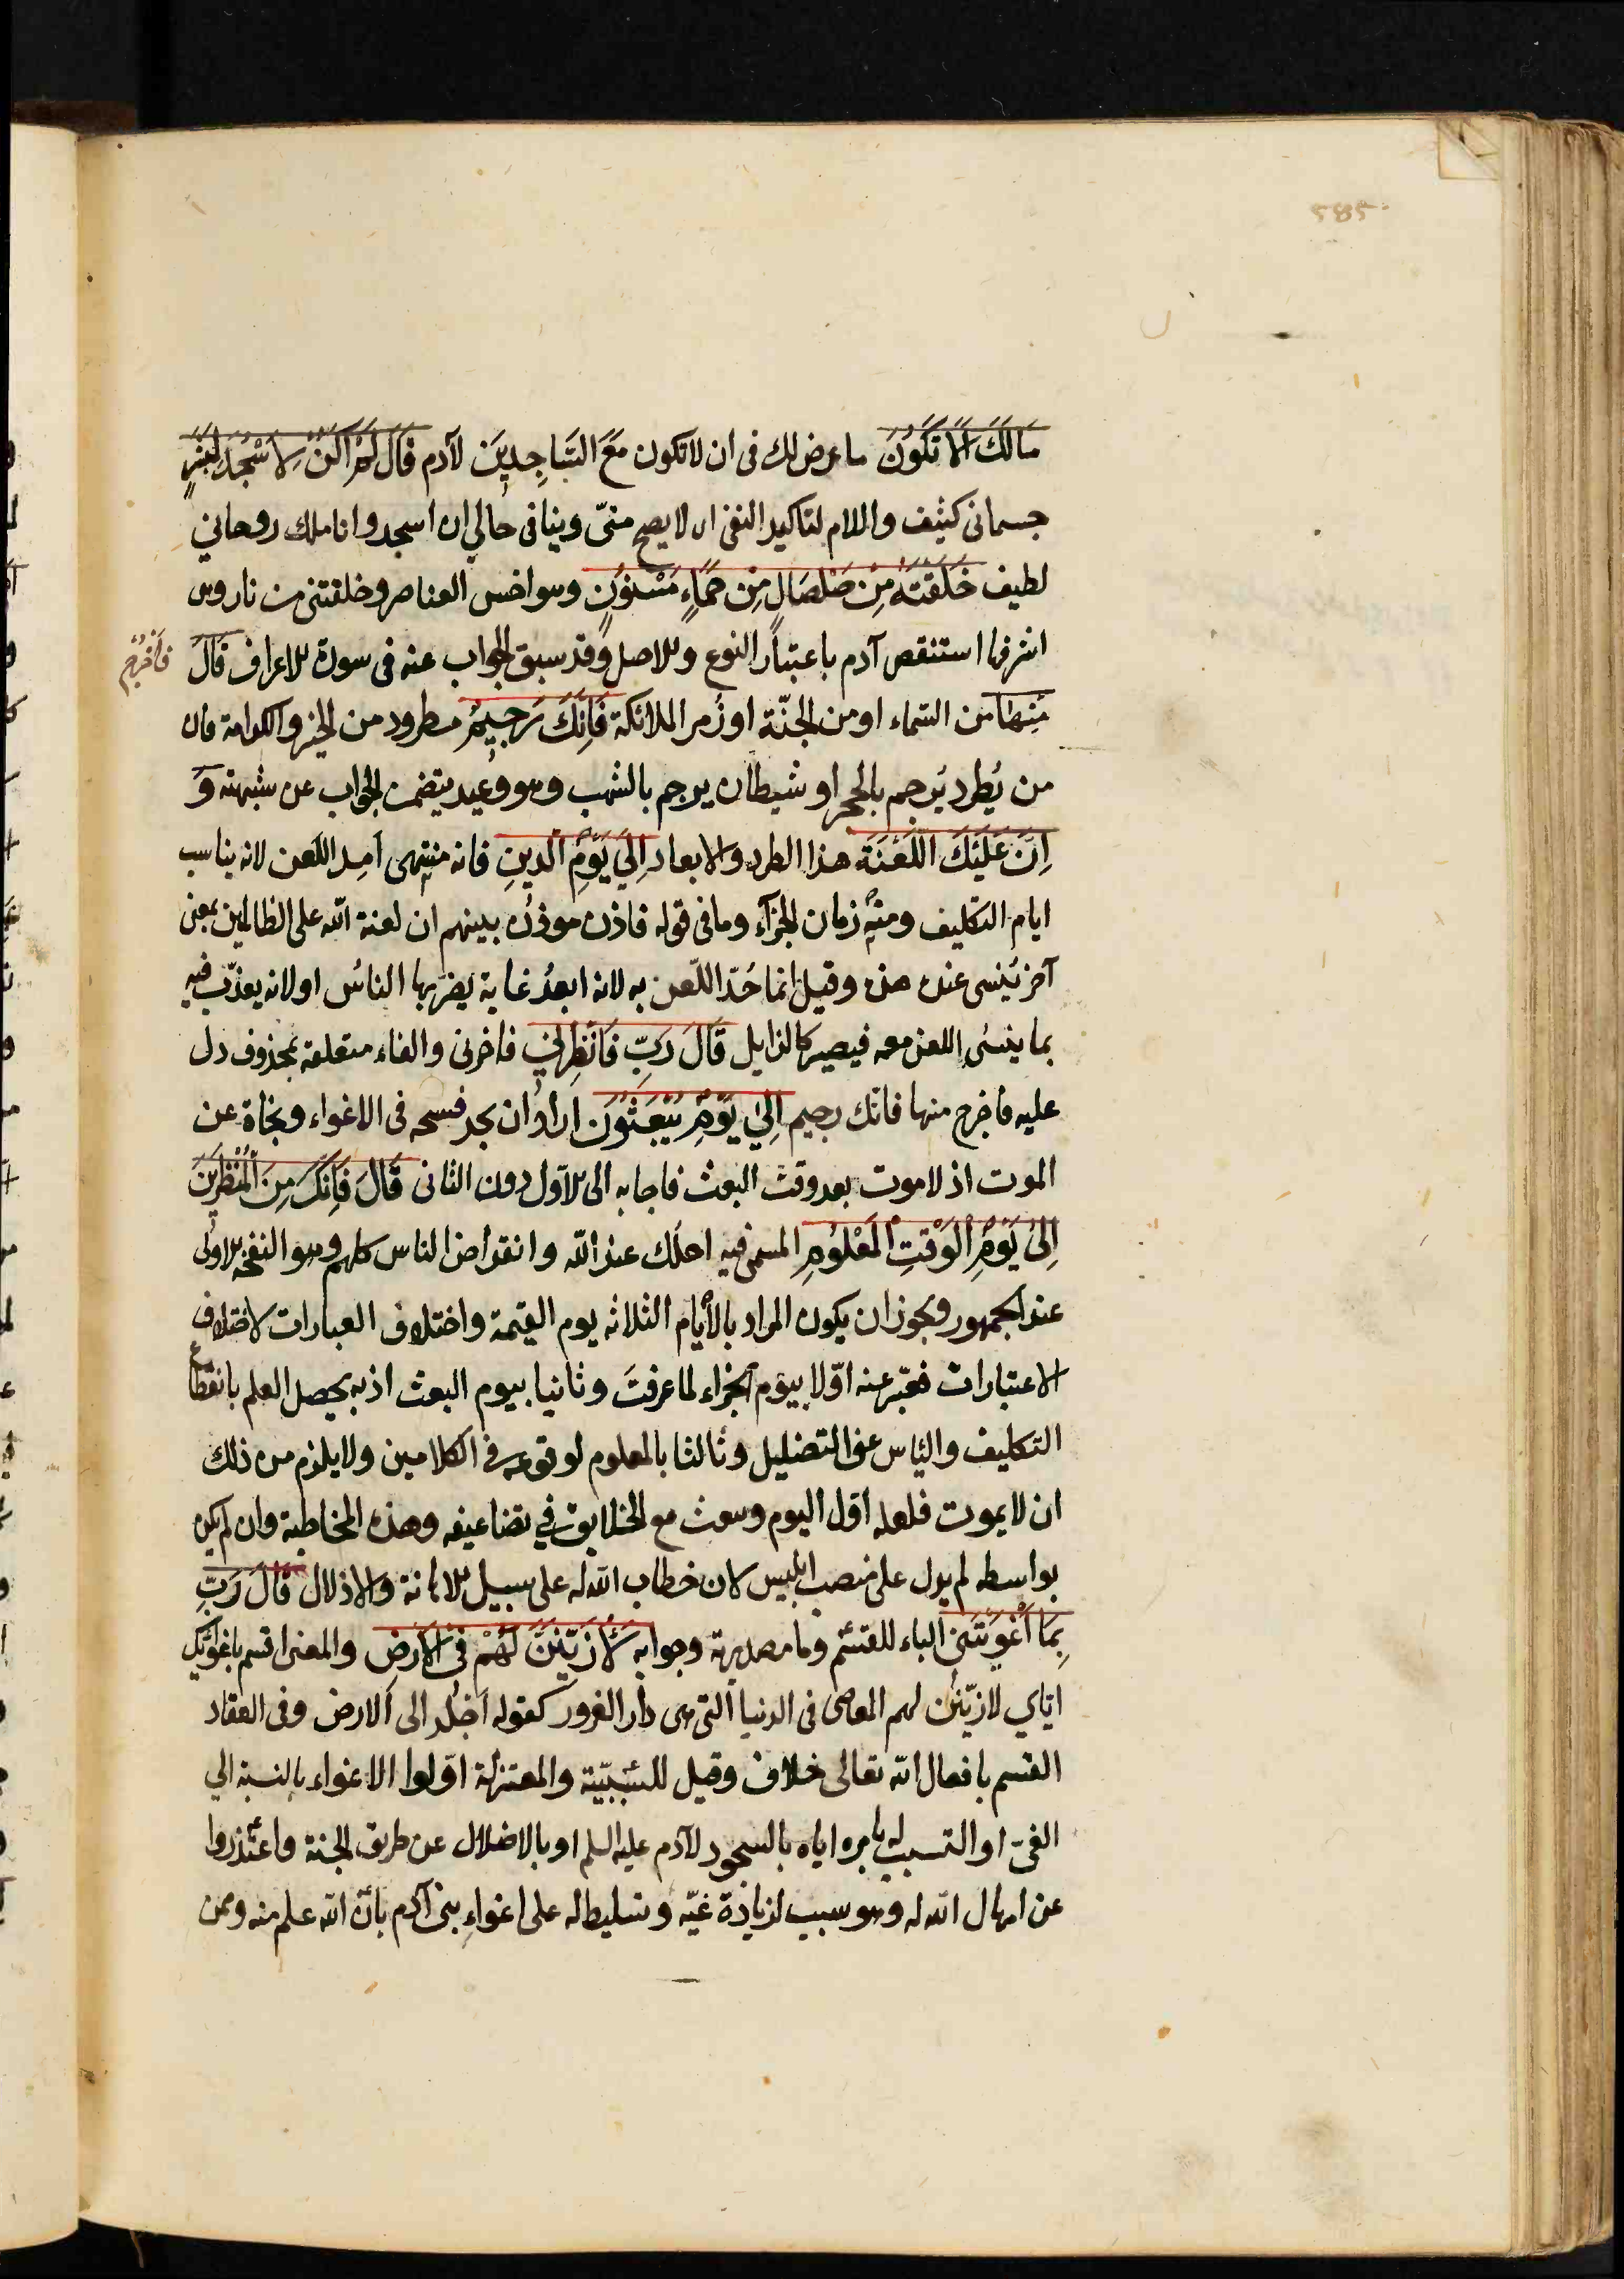 585
مَالَكَ اَلَّا تَكُونَ ما عرض لك فى ان لا تكون مَعَ السَّاجِدِينَ لآدم قَالَ لَمْ اَكُنْ لِاَسْجُدَ لِبَشَرٍ
جسمانى كثيف واللام لتاكيد النفى اى لا يصح منّى وينافى حالي ان اسجد وانا ملك روحاني
لطيف خَلَقْتَهُ مِنْ صَلْصَالٍ مِنْ حَمَاءٍ مَسْنُونٍ وهو اخس العناصر وخلقتنى من نار وهى
اشرفها استنقص آدم باعتبار النوع والاصل وقد سبق الجواب عنه فى سورة الاعراف قَالَ فَاخْرُجْ
مِنْهَا من السّماء او من الجنّة او زُمر الملائكة فَاِنَّكَ رَجِيمٌ مطرود من الخير والكرامة فان
من يُطرد يُرجم بالحجر او شيطان يرجم بالشهب وهو وعيد يتضمن الجواب عن شبهته وَ
اِنَّ عَلَيْكَ اللَّعْنَةَ هذا الطرد والابعاد اِلَي يَوْمِ الدِّينِ فانه منتهى امد اللّعن لانه يناسب
ايام التكليف ومنه زمان الجزآء وما فى قوله فاذن موذن بينهم ان لعنة الله على الظالمين بمعنى
آخر يُنسى عنده هذه وقيل انما حُدّ اللّعن به لانه ابعدُ غاية يضربها الناسُ او لانه يعذّب فيه
بما ينسى اللعن معه فيصير كالزايل قَالَ رَبِّ فَاَنْظِرْنِي فاخرنى والفاء متعلقة بمحذوف دل
عليه فاخرج منها فانّك رجيم اِلَي يَوْمِ يُبْعَثُونَ اراد ان يجد فسحه فى الاغواء ونجاة عن
الموت اذ لا موت بعد وقت البعث فاجابه الى الاوّل دون الثانى قَالَ فَاِنَّكَ مِنَ الْمُنْظَرِينَ
اِلَى يَوْمِ الْوَقْتِ الْمَعْلُومِ المسمى فيه اجلك عند الله وانقراض الناس كلهم وهو النفخة الاولى
عند الجمهور ويجوز ان يكون المراد بالأيام الثلاثه يوم القيمة واختلاف العبارات لاختلاف
الاعتبارات فعبّر عنه اوّلا بيوم الجزاء لما عرفتَ وثانيا بيوم البعث اذ به يحصل العلم بانقطاع
التكليف والياس عن التضليل وثالثا بالمعلوم لوقوعه فى الكلامين ولا يلزم من ذلك
ان لا يموت فلعله اوّل اليوم وبعث مع الخلايق في تضاعيفه وهذه المخاطبة وان لم يكن
بواسطه لم يدل على منصب ابليس لان خطاب الله له على سبيل الاهانة والاذلال قَالَ رَبِّ
بِمَا اَغْوَيْتَنِى الباء للقسم وما مصدرية وجوابه لَاُزَيِّنَنَّ لَهُمْ فِى الْاَرْضِ والمعنى اقسم باغوائك
اياي لازيننّ لهم المعاصى فى الدنيا التى هى دار الغرور كقوله اخلد الى الارض وفى انعقاد
القسم بافعال الله تعالى خلاف وقيل للسّببيّة والمعتزلة اوّلوا الاغواء بالنسبة الي
الغىّ او التسبب له بامره اياه بالسجود لآدم عليه السلم او بالاضلال عن طريق الجنة واعتذروا
عن امهال الله له وهو سبب لزيادة غيّه وتسليط له على اغواءِ بنى آدم بانّ الله علم منه وممن